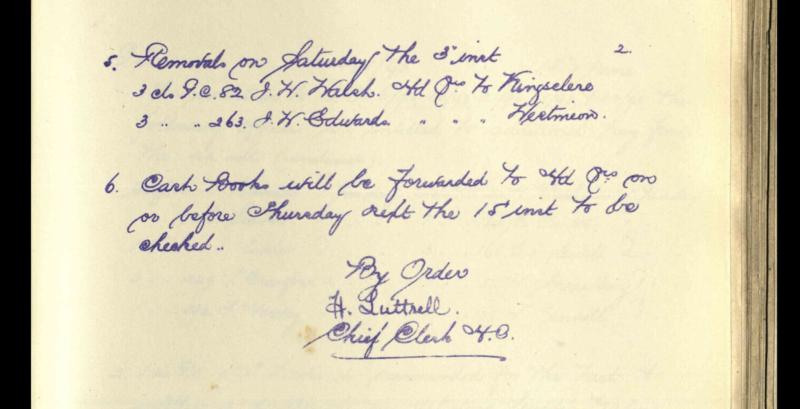 2.
5. Removals on Saturday the 3rd inst
3 cls P.C. 82 J. W. Walsh. Hd Qrs to Kingsclere
3 " " 263. J. W. Edwards " " " Westmeon.
6. Cash Books will be forwarded to Hd Qrs on
or before Thursday next the 15th inst to be
checked..
By Order
H. Luttrell.
Chief Clerk H.C.